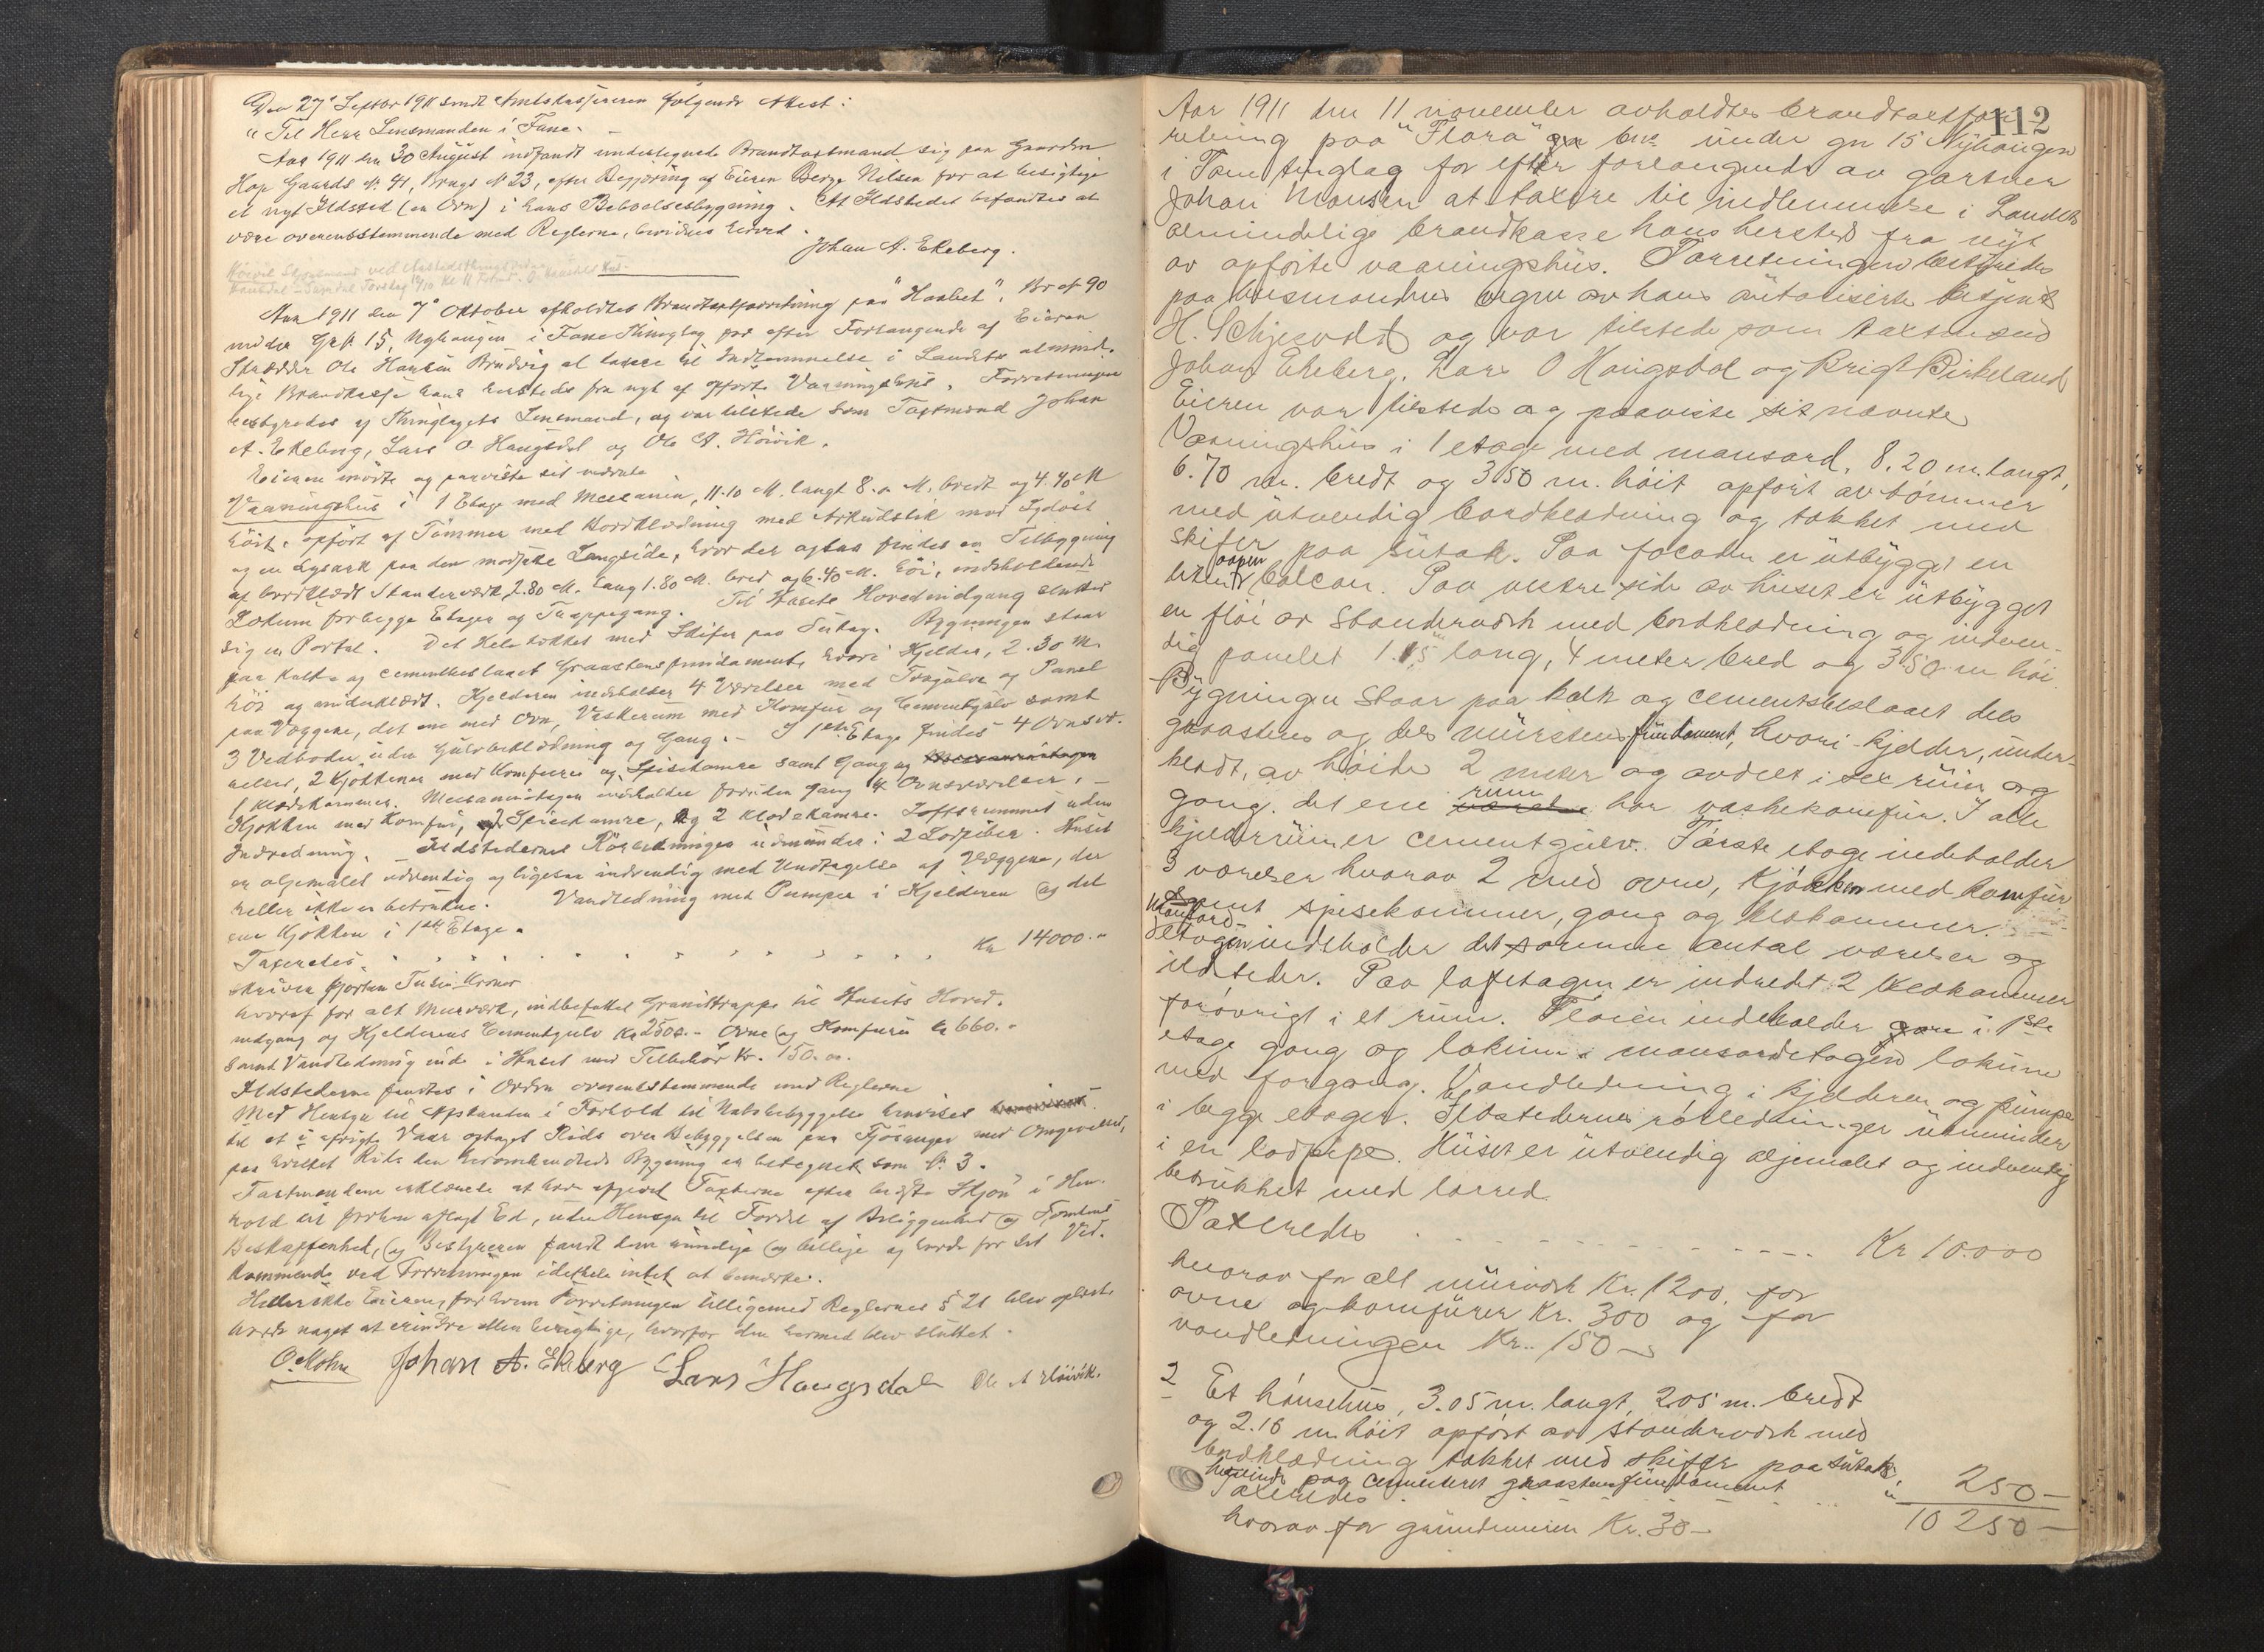 Den 27' Septbr 1911 sendt Amtskassereren følgende Attest:
"Til Herr Lensmanden i Fane.
Aar 1911 den 30 August indfandt undertegnede Brandtaxtmand sig paa Gaarden
Hop Gaards N. 41, Brugs N 23, efter Begjæring af Eieren Berge Nilsen for at besigtige
et nyt Ildsted (en Ovn) i hans Beboelsesbygning. At Ildstedet befandtes at
være overensstemmende med Reglerne, bevidnes herved.
Johan A. Ekeberg.
Aar 1911 den 7' Oktober afholdtes Brandtaxtforretning paa "Haabet", Br N 90
under Gr N. 15, Nyhaugen i Fane Thinglag for efter Forlangende af Eieren
Skrædder Ole Hansen Brudvig at taxere til Indlemmelse i Landets alminde-
lige Brandkasse hans hersteds fra nyt af opførte Vaaningshus. Forretningen
bestyredes af Thinglagets Lensmand, og var tilstede som Taxtmænd Johan
A. Ekeberg, Lars O. Haugsdal og Ole A. Høivik.
Eieren mødte og paaviste sit nævnte
Vaaningshus i 1 Etage med Mezzanin, 11.10 M. langt 8.00 M. bredt og 4.40 M
høit, opført af Tømmer med Bordklædning med Arkudstik mod Sydost
og en Lysark paa den modsatte Langside, hvor der ogsaa findes en Tilbygning
af bordklædt Standerværk, 2.80 M. lang 1.80 M. bred og 6.40 M. høi, indeholdende
Lokum for begge Etager og Trappegang. Til Husets Hovedindgang slutter
sig en Portal. Det Hele tækket med Skifer paa Sutag. Bygningen staar
paa Kalk- og cementbeslaaet Graastensfundament, hvori Kjelder, 2.30 M.
høi og underklædt. Kjelderen indeholder 4 Værelser med Trægulve og Panel
paa Væggene, det ene med Ovn, Vaskerum med Komfur og Cementgulv samt
3 Vedboder uden Gulvbeklædning og Gang. I 1ste Etage findes 4 Ovnsvæ-
relser, 2 Kjøkkener med Komfurer og Spisekamre samt Gang og Mezzaninetagen
1 Klædekammer. Mezzaninetagen indeholder foruden Gang 4 Ovnsværelser,
Kjøkken med Komfur, Spisekamre, og 2 Klædekamre. Loftsrummet uden
Indredning. Ildstedernes Rørledninger udmunder i 2 Lodpiber. Huset
er oljemalet udvendig og ligesaa indvendig med Undtagelse af Væggene, der
heller ikke er betrukne. Vandledning med Pumper i Kjelderen og det
ene Kjøkken i 1ste Etage.
Taxeredes . . . . . . . . . . . Kr 14000.-
skriver fjorten Tusen Kroner
hvoraf for alt Murværk, indbefattet Granittrappe til Husets Hoved-
indgang og Kjelderens Cementgulv Kr 2500.- Ovne og Komfurer kr 660.-
samt Vandledning inde i Huset med Tilbehør Kr. 150.00.
Ildstederne fandtes i Orden overensstemmende med Reglerne
Med Hensyn til Afstanden i Forhold til Nabobebyggelse henvises
til et i afvigte Vaar optaget Rids over Bebyggelsen paa Fjøsanger med Omgivelser,
paa hvilket Rids den heromhandlede Bygning er betegnet som N. 3.
Taxtmændene erklærede at have afgivet Taxterne efter bedste Skjøn i Hen-
hold til forhen aflagt Ed, uden Hensyn til Fordel af Beliggenhed og Tomtens
Beskaffenhed, og Bestyreren fandt dem rimelige og billige og havde for sit Ved-
kommende ved Forretningen idethele intet at bemærke.
Heller ikke Eieren, for hvem Forretningen tilligemed Reglernes § 21 blev oplæst,
havde noget at erindre eller berigtige, hvorfor den hermed blev sluttet.
O. Mohn Johan A. Ekeberg Lars Haugsdal Ole A Høivik.
112
Aar 1911 den 11 november avholdtes brandtaxtfor-
retning paa "Flora" bnr under gn 15 Nyhaugen
i Fane tinglag for efter forlangende av gartner
Johan Monsen at taxere til indlemmelse i Landets
almindelige brandkasse hans hersteds fra nyt
av opførte vaaningshus. Forretningen bestyredes
paa lensmandens vegne av hans autoriserte betjent
H. Schjevoldt og var tilstede som taxtmænd
Johan Ekeberg, Lars O Haugsdal og Brigt Birkeland
Eieren var tilstede og paaviste sit nævnte
Vaaningshus i 1 etage med mansard, 8.20 m. langt,
6.70 m. bredt og 3.50 m. høit opført av tømmer
med utvendig bordklædning og tækket med
skifer paa sutak. Paa facaden er utbygget en
liten aapen balcon. Paa vestre side av huset er utbygget
en fløi av standerværk med bordklædning og indven-
dig panelet 1.15 m lang, 4 meter bred og 3.50 m høi.
Bygningen staar paa kalk og cementbeslaaet dels
graastens og dels murstens fundament, hvori kjelder, under-
klædt, av høide 2 meter og avdelt i sex rum og
gang. det ene rum har vaskekomfur. I alle
kjelderrum er cementgulv. Første etage indeholder
3 værelser hvorav 2 med ovne, Kjøkken med komfur
samt spisekammer, gang og klækammer.
Mansard-
etagen indeholder det samme antal værelser og
ildsteder. Paa loftetagen er indredet 2 klækammer
forøvrigt i et rum. Fløien indeholder i 1ste
etage gang og lokum i mansardetagen lokum
med forgang. Vandledning i kjelderen og pumpe
i begge etager. Ildstedernes rørledninger utmunder
i en lodpipe. Huset er utvendig oljemalet og indvendig
betrukket med lærred.
Taxeredes . . . . . . Kr 10.000
hvorav for alt murværk Kr. 1200, for
ovne og komfurer Kr. 300 og for
vandledningen Kr. 150 -
2 Et hønsehus, 3.05 m. langt, 2.05 m. bredt
og 2.16 m. høit opført av standerværk med
bordklædning tækket med skifer paa sutak,
paa cementeret graastensfundament
Taxeredes . . . . . " 250 -
10 250 -
hvorav for grundmuren Kr. 30 -